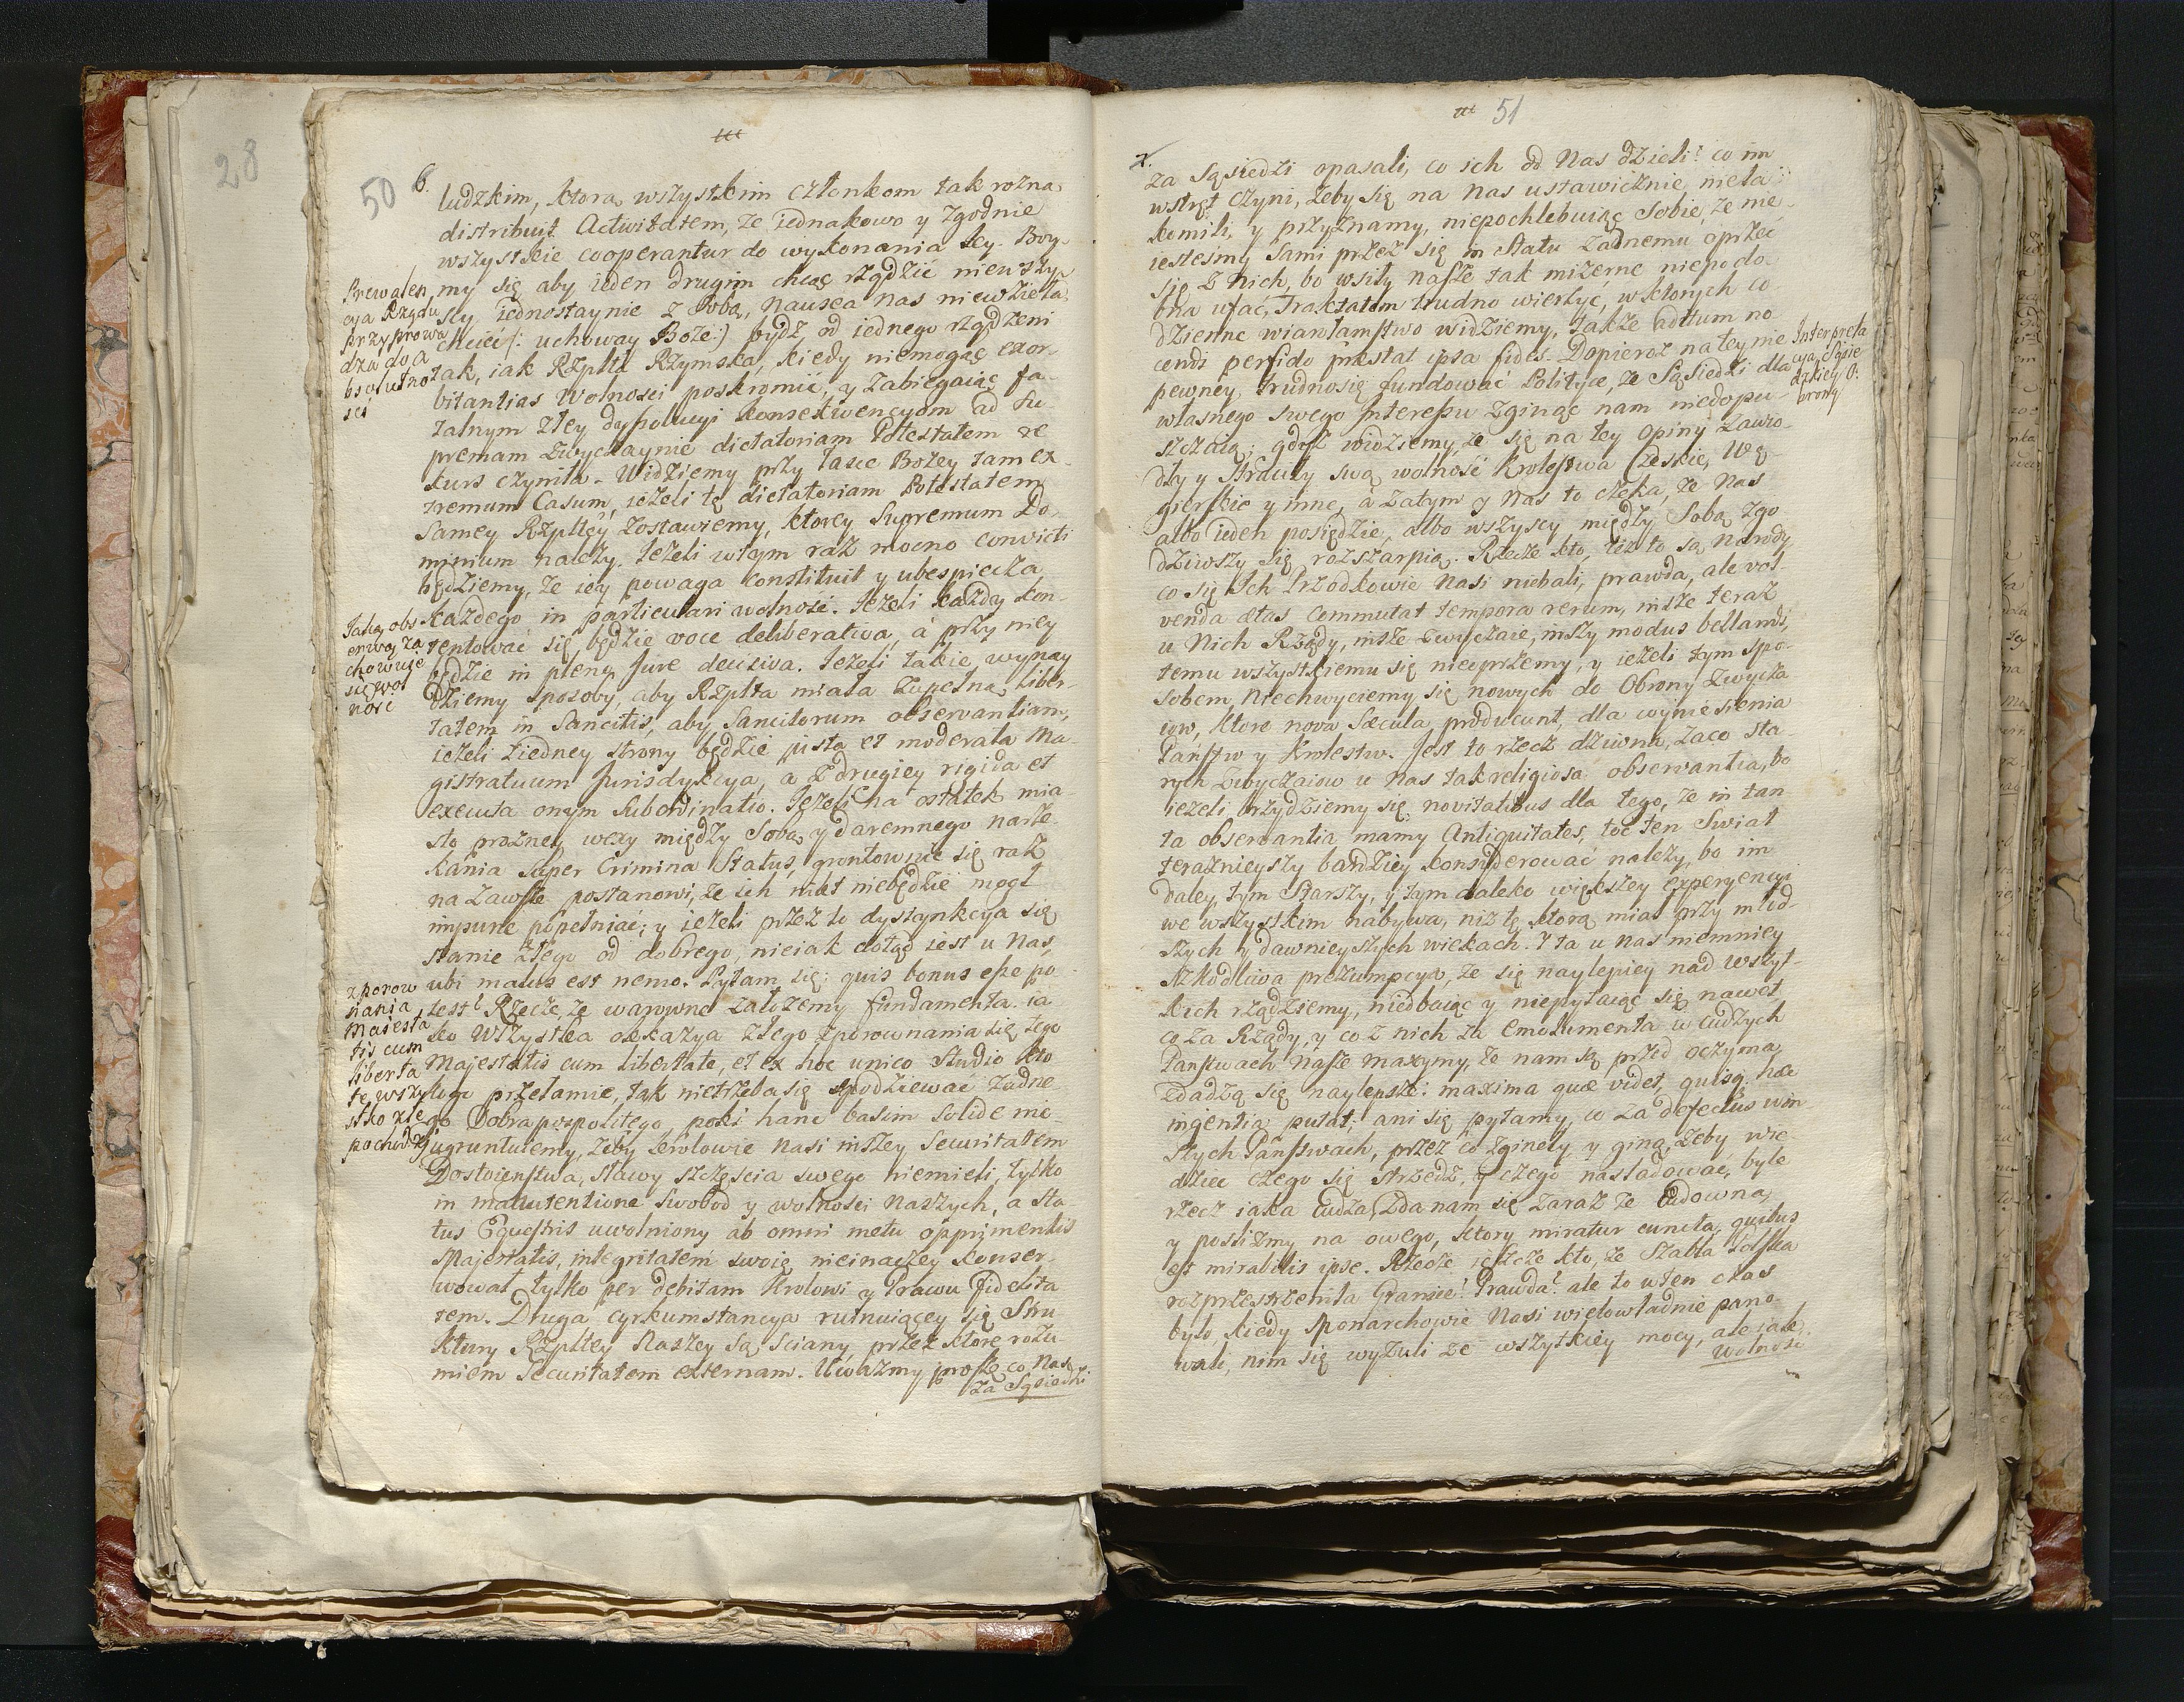 28
50
6.
ludzkim, ktora wszystkim Członkom tak rożna
distribuit Activitatem, że iednakowo y zgodnie
wszystkie cooperantur do wykonania tey. Boy-
my się aby ieden drugim chcąc rządzić niewszy-
scy iednostaynie z sobą, nausea nas niewzieła
chcieć /: uchoway Boże:/ bydź od iednego rządzeni
tak, iak Rzplta Rzymska, kiedy niemogąc exor-
bitantias Wolności poskromić, y zabiegaiąc fa-
talnym złey dyspozycyi konsekwencyom ad Su-
premam zwyczaynie dictatoriam Potestatem re
kurs czyniła. Widziemy przy łasce Bożey jam ex-
tremum Casum, ieżeli tę dictatoriam Potestatem
Samey Rzpltey zostawiemy, ktorey Supremum Do-
minium należy. Ieżeli wtym raz mocno convicti
będziemy, że iey powaga konstituit y ubespiecza
każdego in particulari wolność. Ieżeli każdy kon-
tentować się będzie voce deliberativa, á przy niey
będzie in pleno Jure decisiva. Ieżeli takie wynay
dziemy sposoby, aby Rzplta miała zupełną Liber-
tatem in Sancitis, aby Sancitorum observantiam,
ieżeli ziedney strony będzie justa et moderata Ma-
gistratuum Jurisdykcya, a z drugiey rigida et
executa onym Subordinatio. Ieżeli na ostatek mia-
sto prożney wexy między Sobą y daremnego narze-
kania super Crimina Status, gruntownie się raz
na zawsze postanowi, że ich nikt niebędzie mogł
impune popełniać; y ieżeli przez to dystynkcya się
stanie złego od dobrego, nieiak dotąd iest u nas,
ubi malus est nemo. Pytam się: quis bonus esse po-
test? Rzecze, że warowne założemy fundamenta. ia
ko Wszystka okazya złego zporownania się tego
Majestatis cum libertate, et ex hoc unico Studio kto
kogo przełamie, tak nietrzeba się spodziewać żadne
go Dobra pospolitego, poki hanc basim solide nie
ugruntuiemy, żeby krolowie nasi inszey Securitatem
Dostoieństwa, sławy szczęścia swego niemieli, tylko
in manutentione Swobod y wolności Naszych, a Sta-
tus Equestris uwolniony ab omni metu opprimentis
Majestatis, integritatem swoię nieinaczey konser-
wował tylko per debitam Krolowi y Prawu fidelita
tem. Druga cyrkumstancya ruinuiącey się Stru
ktury Rzpltey Naszey są sciany przez ktore rozu
miem Securitatem externam. Uważmy proszę co Nas
za Sąsiedzi
Prewalen
cya Rządu
przyprowa
dza do a
bsolutno
sci
Jaką obs
erwą za
chowuie
się wol
ność
zporow
nania
Majesta
tis cum
liberta
te wszy
stko złe
pochodzi
51
7.
za Sąsiedzi opasali, co ich od Nas dzieli? co im
wstręt czyni, żeby się na Nas ustawicznie nieła-
komili, y przyznamy, niepochlebuiąc Sobie, że nie-
iestesmy Sami przez się in Statu żadnemu oprzeć
się z nich, bo w siły nasze tak mizerne niepodo-
bna ufać, Traktatom trudno wierzyć, w ktorych co-
dzienne wiarłamstwo widziemy, także aditum no
cendi perfido præstat ipsa fides. Dopieroż na tey nie
pewney trudno się fundować Polityce, że Sąsiedzi dla
własnego swego Interessu zginąć nam niedopu-
szczaią; gdyż widziemy, że się na tey Opinij zawio-
dły y straciły swą wolność Krolestwa Czeskie, Wę-
gierskie y inne, á zatym y Nas to czeka, że Nas
albo ieden posiędzie, albo wszyscy między Sobą zgo
dziwszy się rozszarpią. Rzecze kto, też to są Narody
co się Ich Przodkowie Nasi niebali, prawda, ale vol-
venda ætas Commutat tempora rerum, insze teraz
u Nich Rządy, insze zwyczaie, inszy modus bellandi,
temu wszystkiemu się nieoprzemy, y ieżeli tym spo-
sobem niechwyciemy się nowych do Obrony zwycza
iow, ktore nova Sæcula producunt, dla wyniesienia
Państw y Krolestw. Jest to rzecz dziwna, zaco sta-
rych zwyczaiow u Nas tak religiosa observantia, bo
ieżeli brzydziemy się novitatibus dla tego, że in tan-
ta observantia mamy Antiquitates, toć ten Swiat
teraźnieyszy bardziey konsyderować należy, bo im
daley, tym Starszy, y tym daleko większey experyencyi
we wszystkim nabywa, niż tę ktorą miał przy młod-
szych y dawnieyszych wiekach. Y ta u nas niemniey
szkodliwa prezumpcya, że się naylepiey nad wszyst-
kich rządziemy, niedbaiąc y niepytaiąc się nawet
co za Rządy, y co z nich za emolumenta w cudzych
Państwach. Nasze maxymy, że nam są przed oczyma
zdadzą się naylepsze: maxima quæ videt, quisq. hæc
ingentia putat; ani się pytamy, co za defectus w in-
szych Państwach, przez co zgineły y giną, żeby wie-
dzieć czego się strzedz, y czego nasladować, byle
rzecz iaka cudza, zda nam się zaraz że cudowna,
y poszliśmy na owego, ktory miratur cuncta, quibus
est mirabilis ipse. Rzecze ieszcze kto, że Szabla Polska
rozprzestrzeniła Granice! Prawda! ale to w ten czas
było, kiedy Monarchowie Nasi wielowładnie pano-
wali, nim się wyzuli ze wszytkiey mocy, ale iak
Wolności
Interpreta
cya Sąsie
dzkiey O-
brony